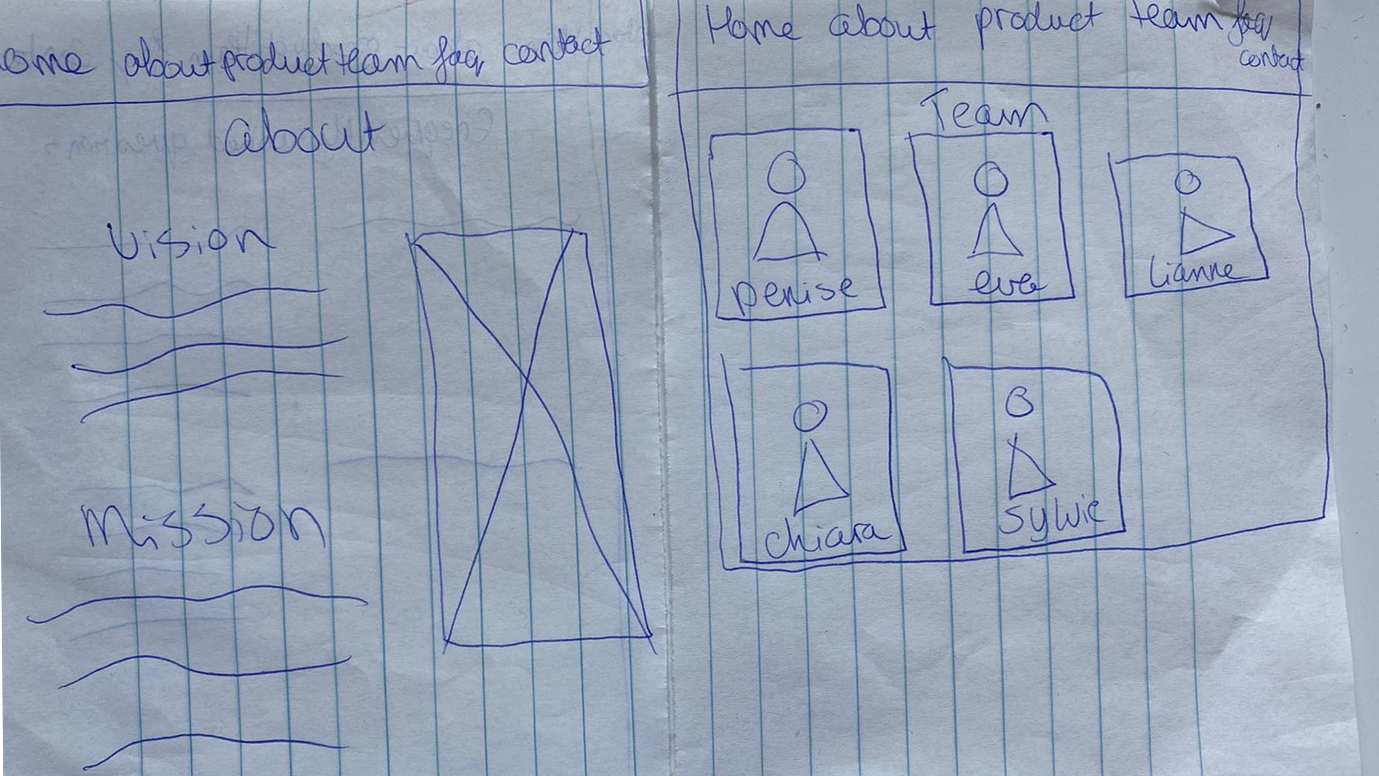 ome about product team faq contact
about
vision
mission
Home about product team faq
contact
Team
Denise
eva
lianne
chiara
sylvie